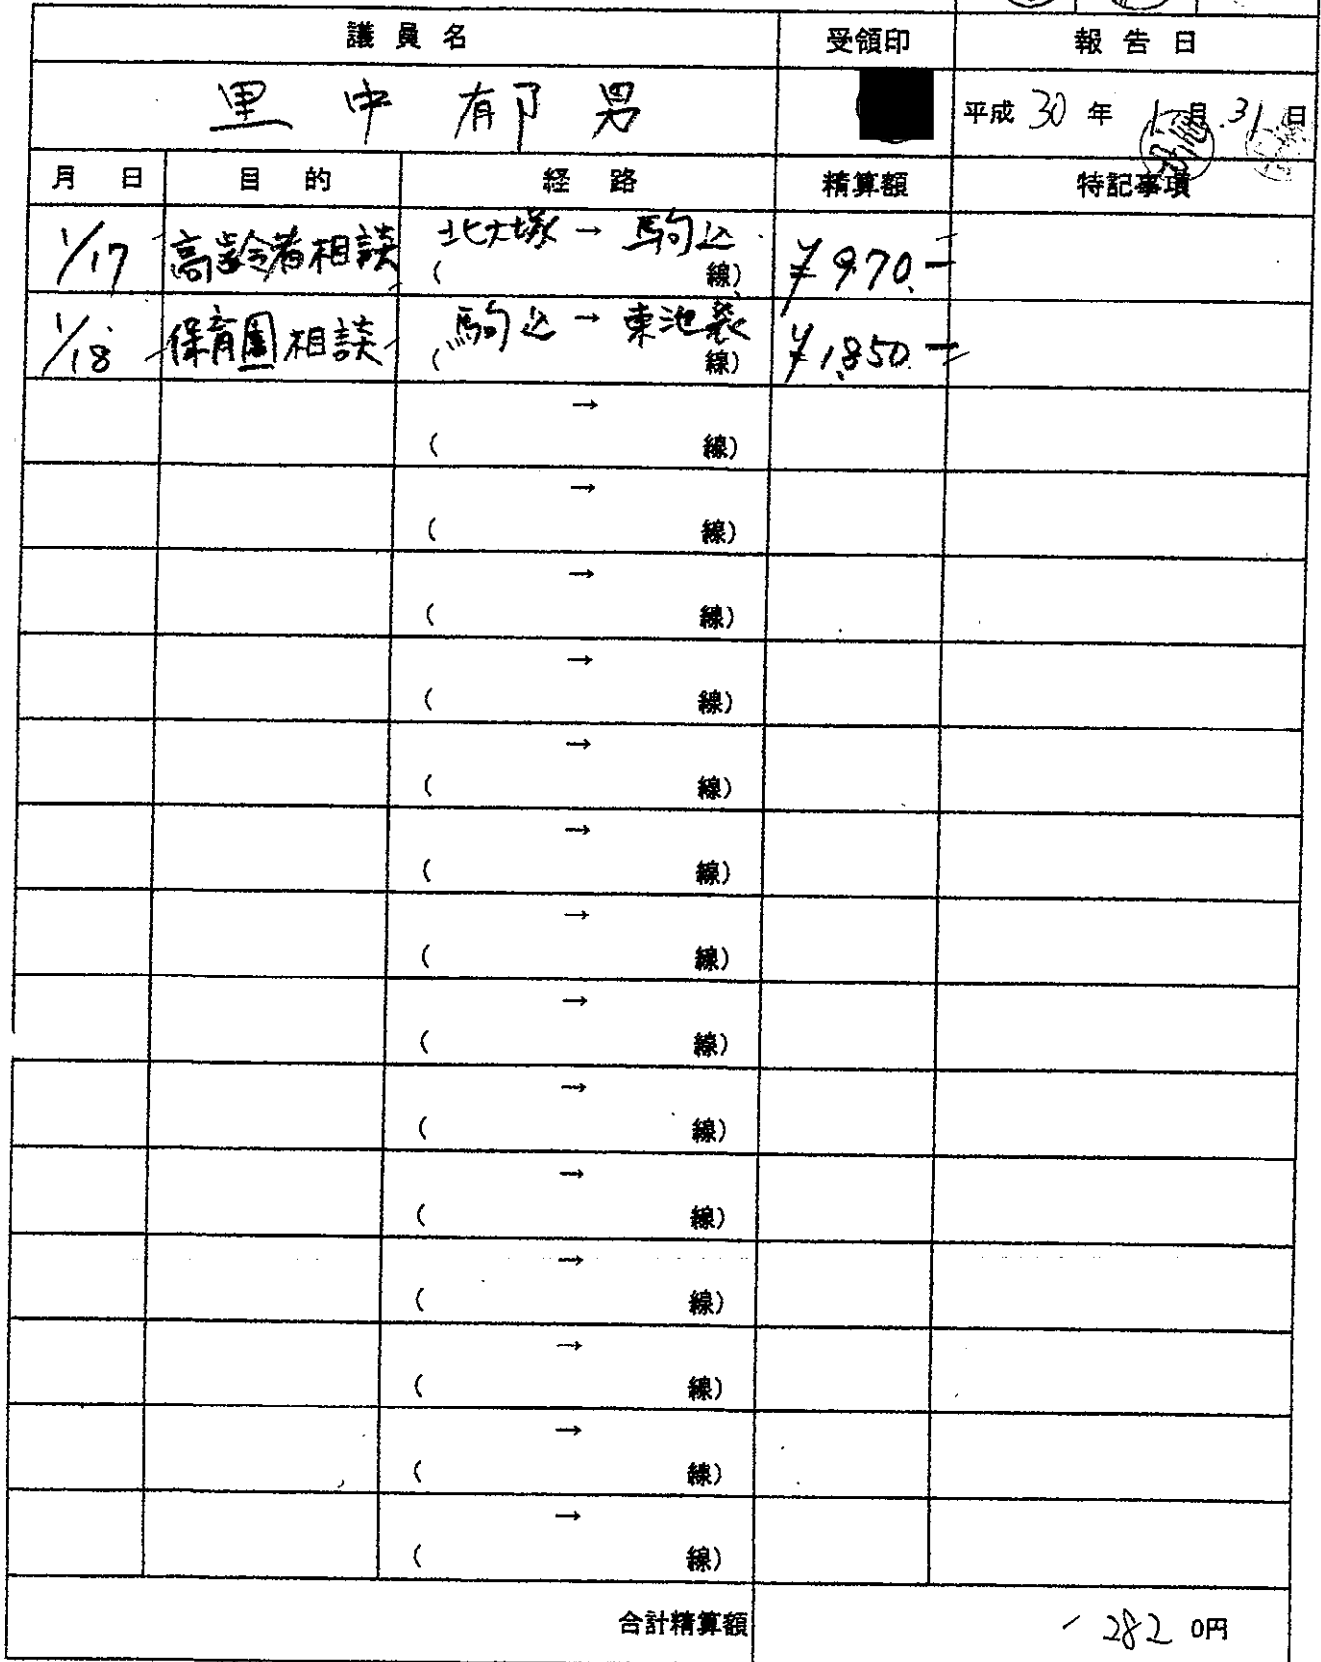 議員名 受領印 報告日
里中郁男 平成30年1月31日
月日 目的 経路 精算額 特記事項
1/17 高齢者相談 北大塚→駒込 ¥970.-
( 線)
1/18 保育園相談 駒込→東池袋 ¥1,850.-
( 線)
→
( 線)
→
( 線)
→
( 線)
→
( 線)
→
( 線)
→
( 線)
→
( 線)
→
( 線)
→
( 線)
→
( 線)
→
( 線)
→
( 線)
→
( 線)
→
( 線)
合計精算額 2820円